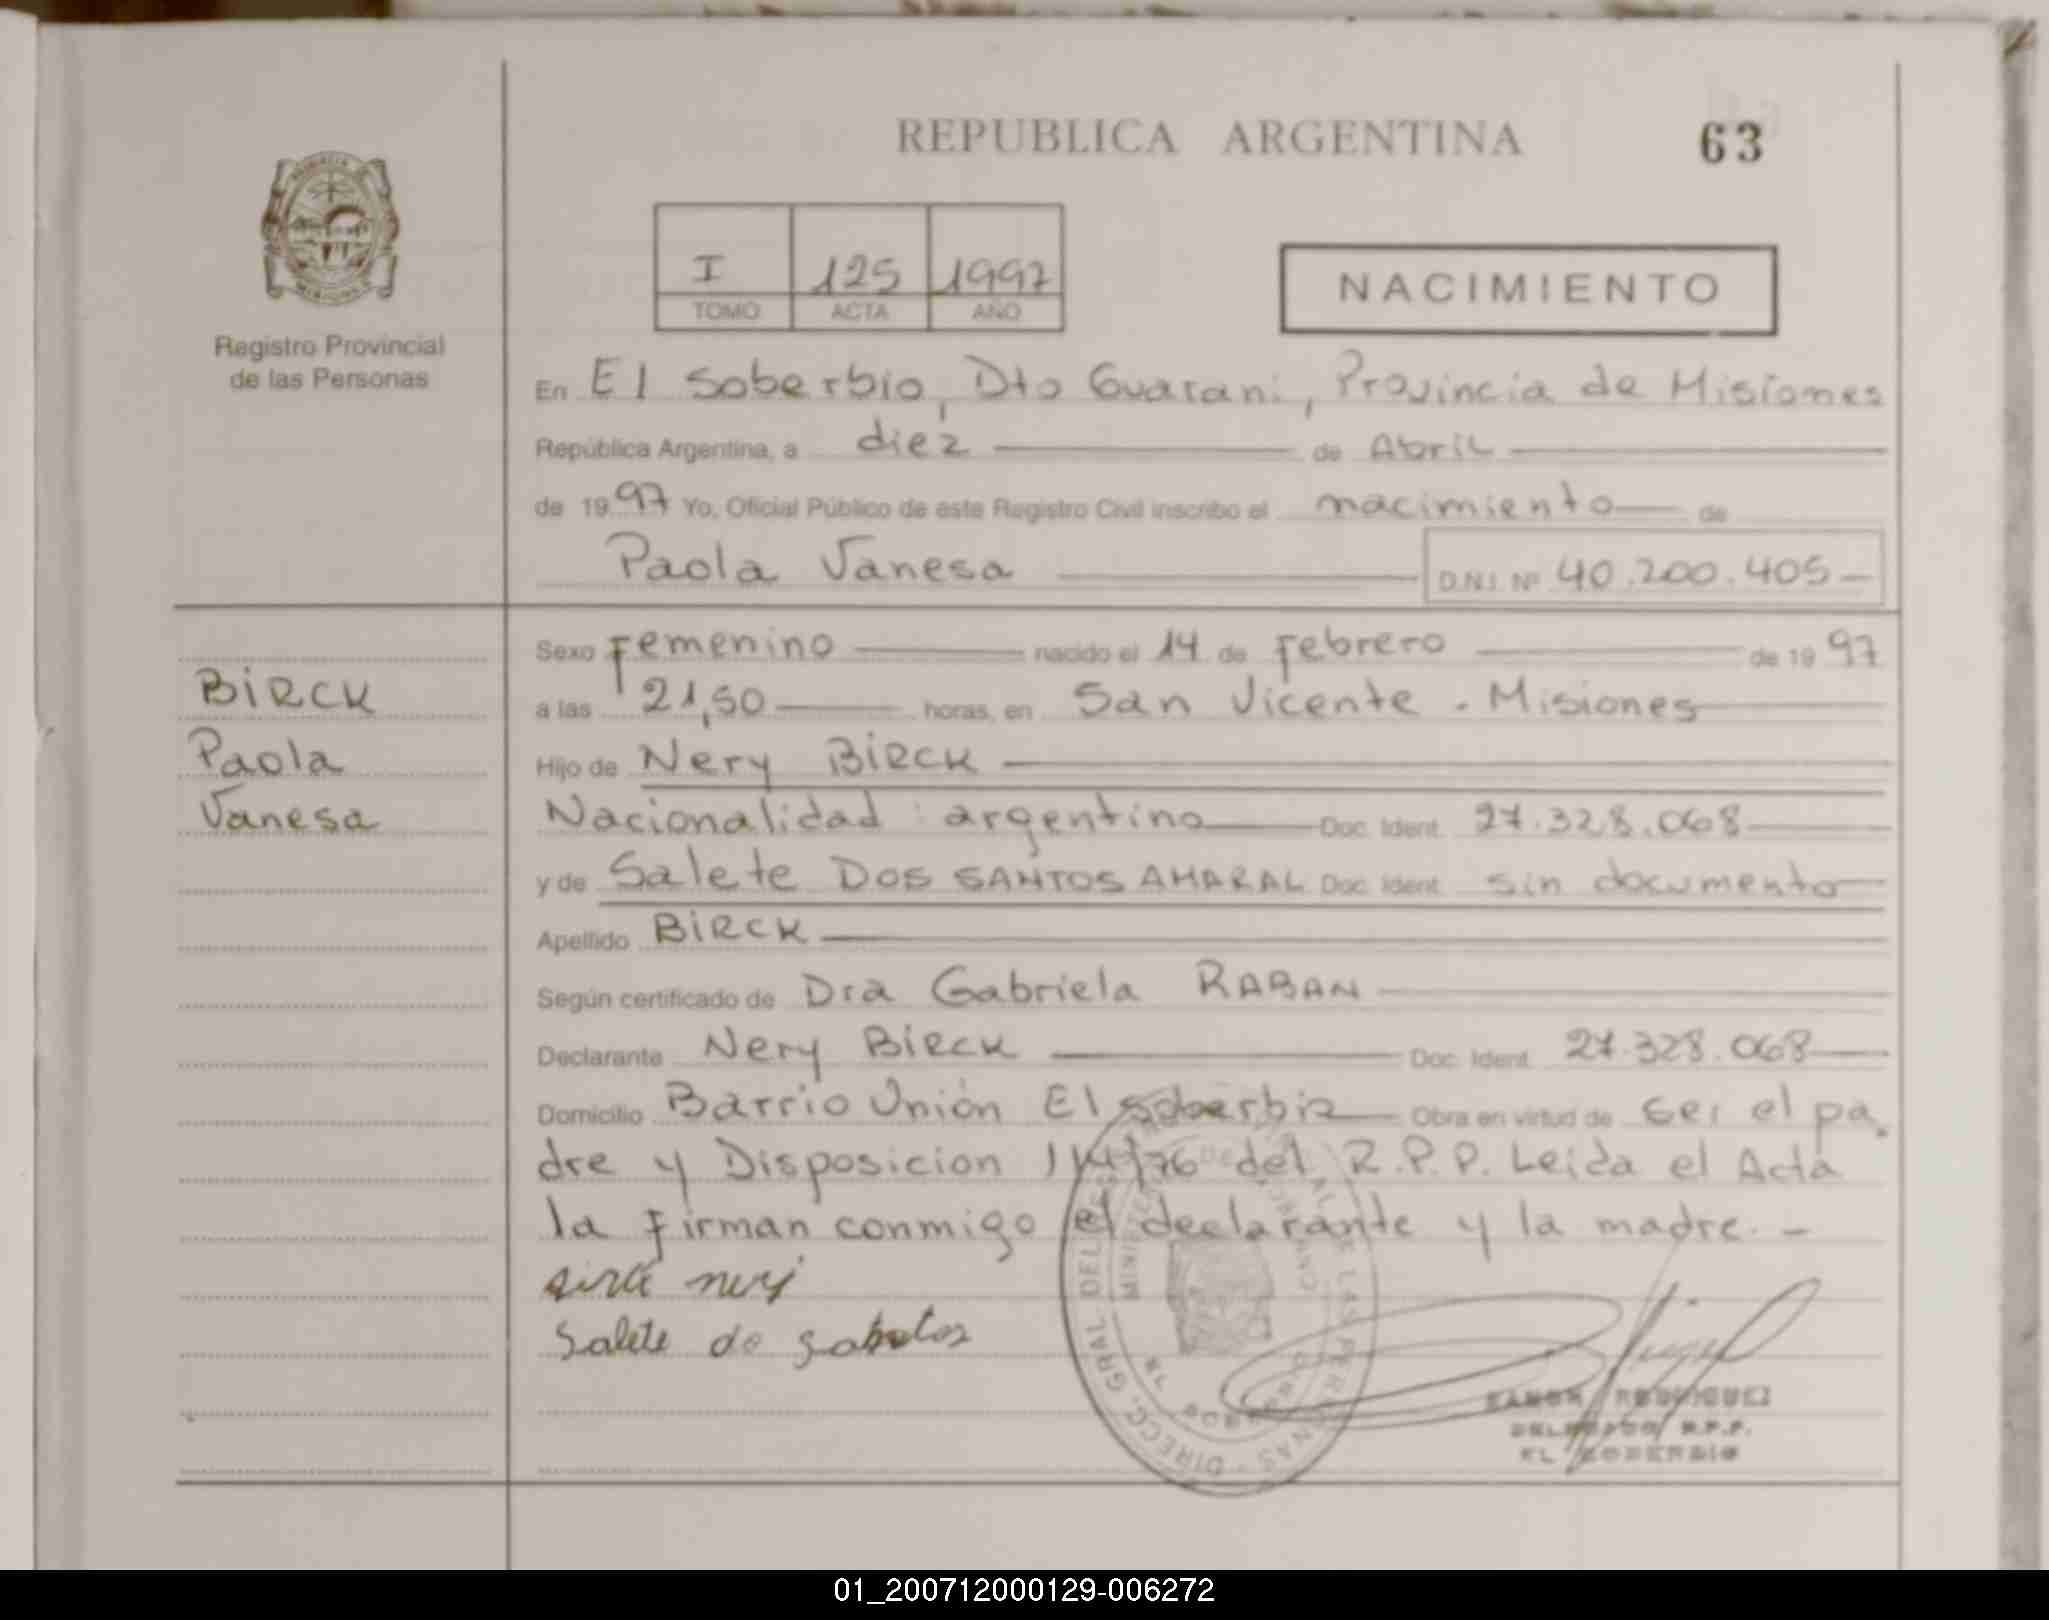 REPUBLICA ARGENTINA
63
I 125 1997
TOMO ACTA AÑO
NACIMIENTO
Registro Provincial
de las Personas
En El Soberbio, Dto Guarani, Provincia de Misiones
República Argentina, a diez de Abril
de 1997 Yo, Oficial Público de este Registro Civil inscribo el nacimiento de
Paola Vanesa D.N.I. Nº 40.200.405
BIRCK
Paola
Vanesa
Sexo Femenino nacido el 14 de Febrero de 1997
a las 21,50 horas, en San Vicente - Misiones
Hijo de Nery BIRCK
Nacionalidad: argentino Doc. Ident. 27.328.068
y de Salete DOS SANTOS AMARAL Doc. Ident. sin documento
Apellido BIRCK
Según certificado de Dra Gabriela RABAN
Declarante Nery BIRCK Doc. Ident. 27.328.068
Domicilio Barrio Unión El Soberbio Obra en virtud de ser el pa
dre y Disposicion 114/76 del R.P.P. Leida el Acta
la Firman conmigo el declarante y la madre. -
Salete do
RAMON RODRIGUEZ
DELEGADO R.P.P.
EL SOBERBIO
01_200712000129-006272